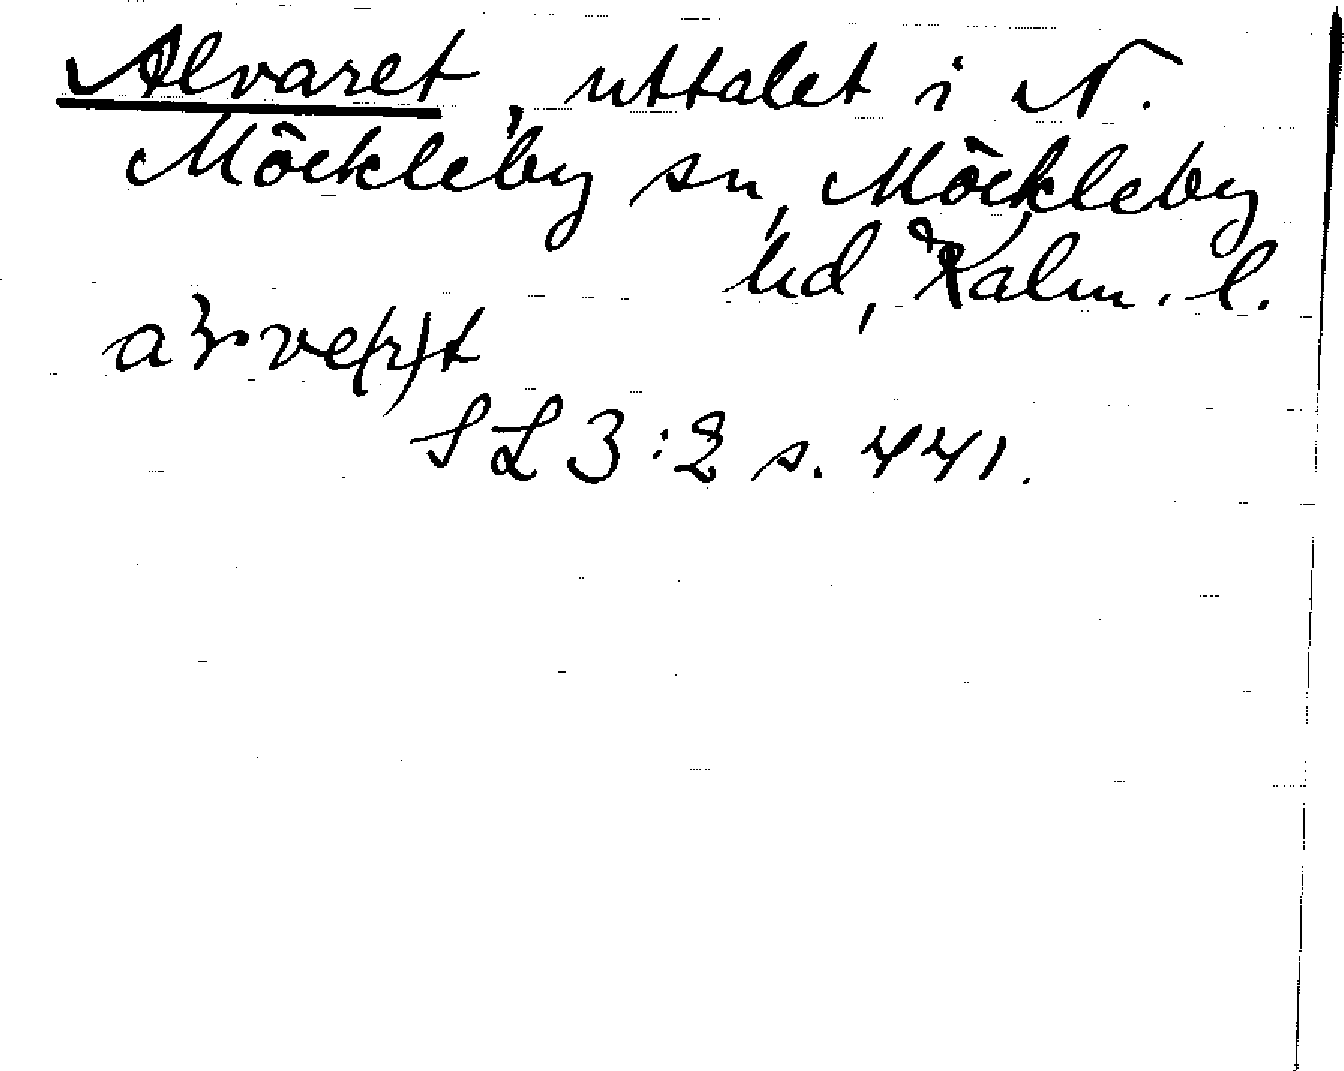 Alvaret, uttalet i N.
Möckleby sn, Möckleby
hd, Kalm. l.
SL 3:2 s. 441.